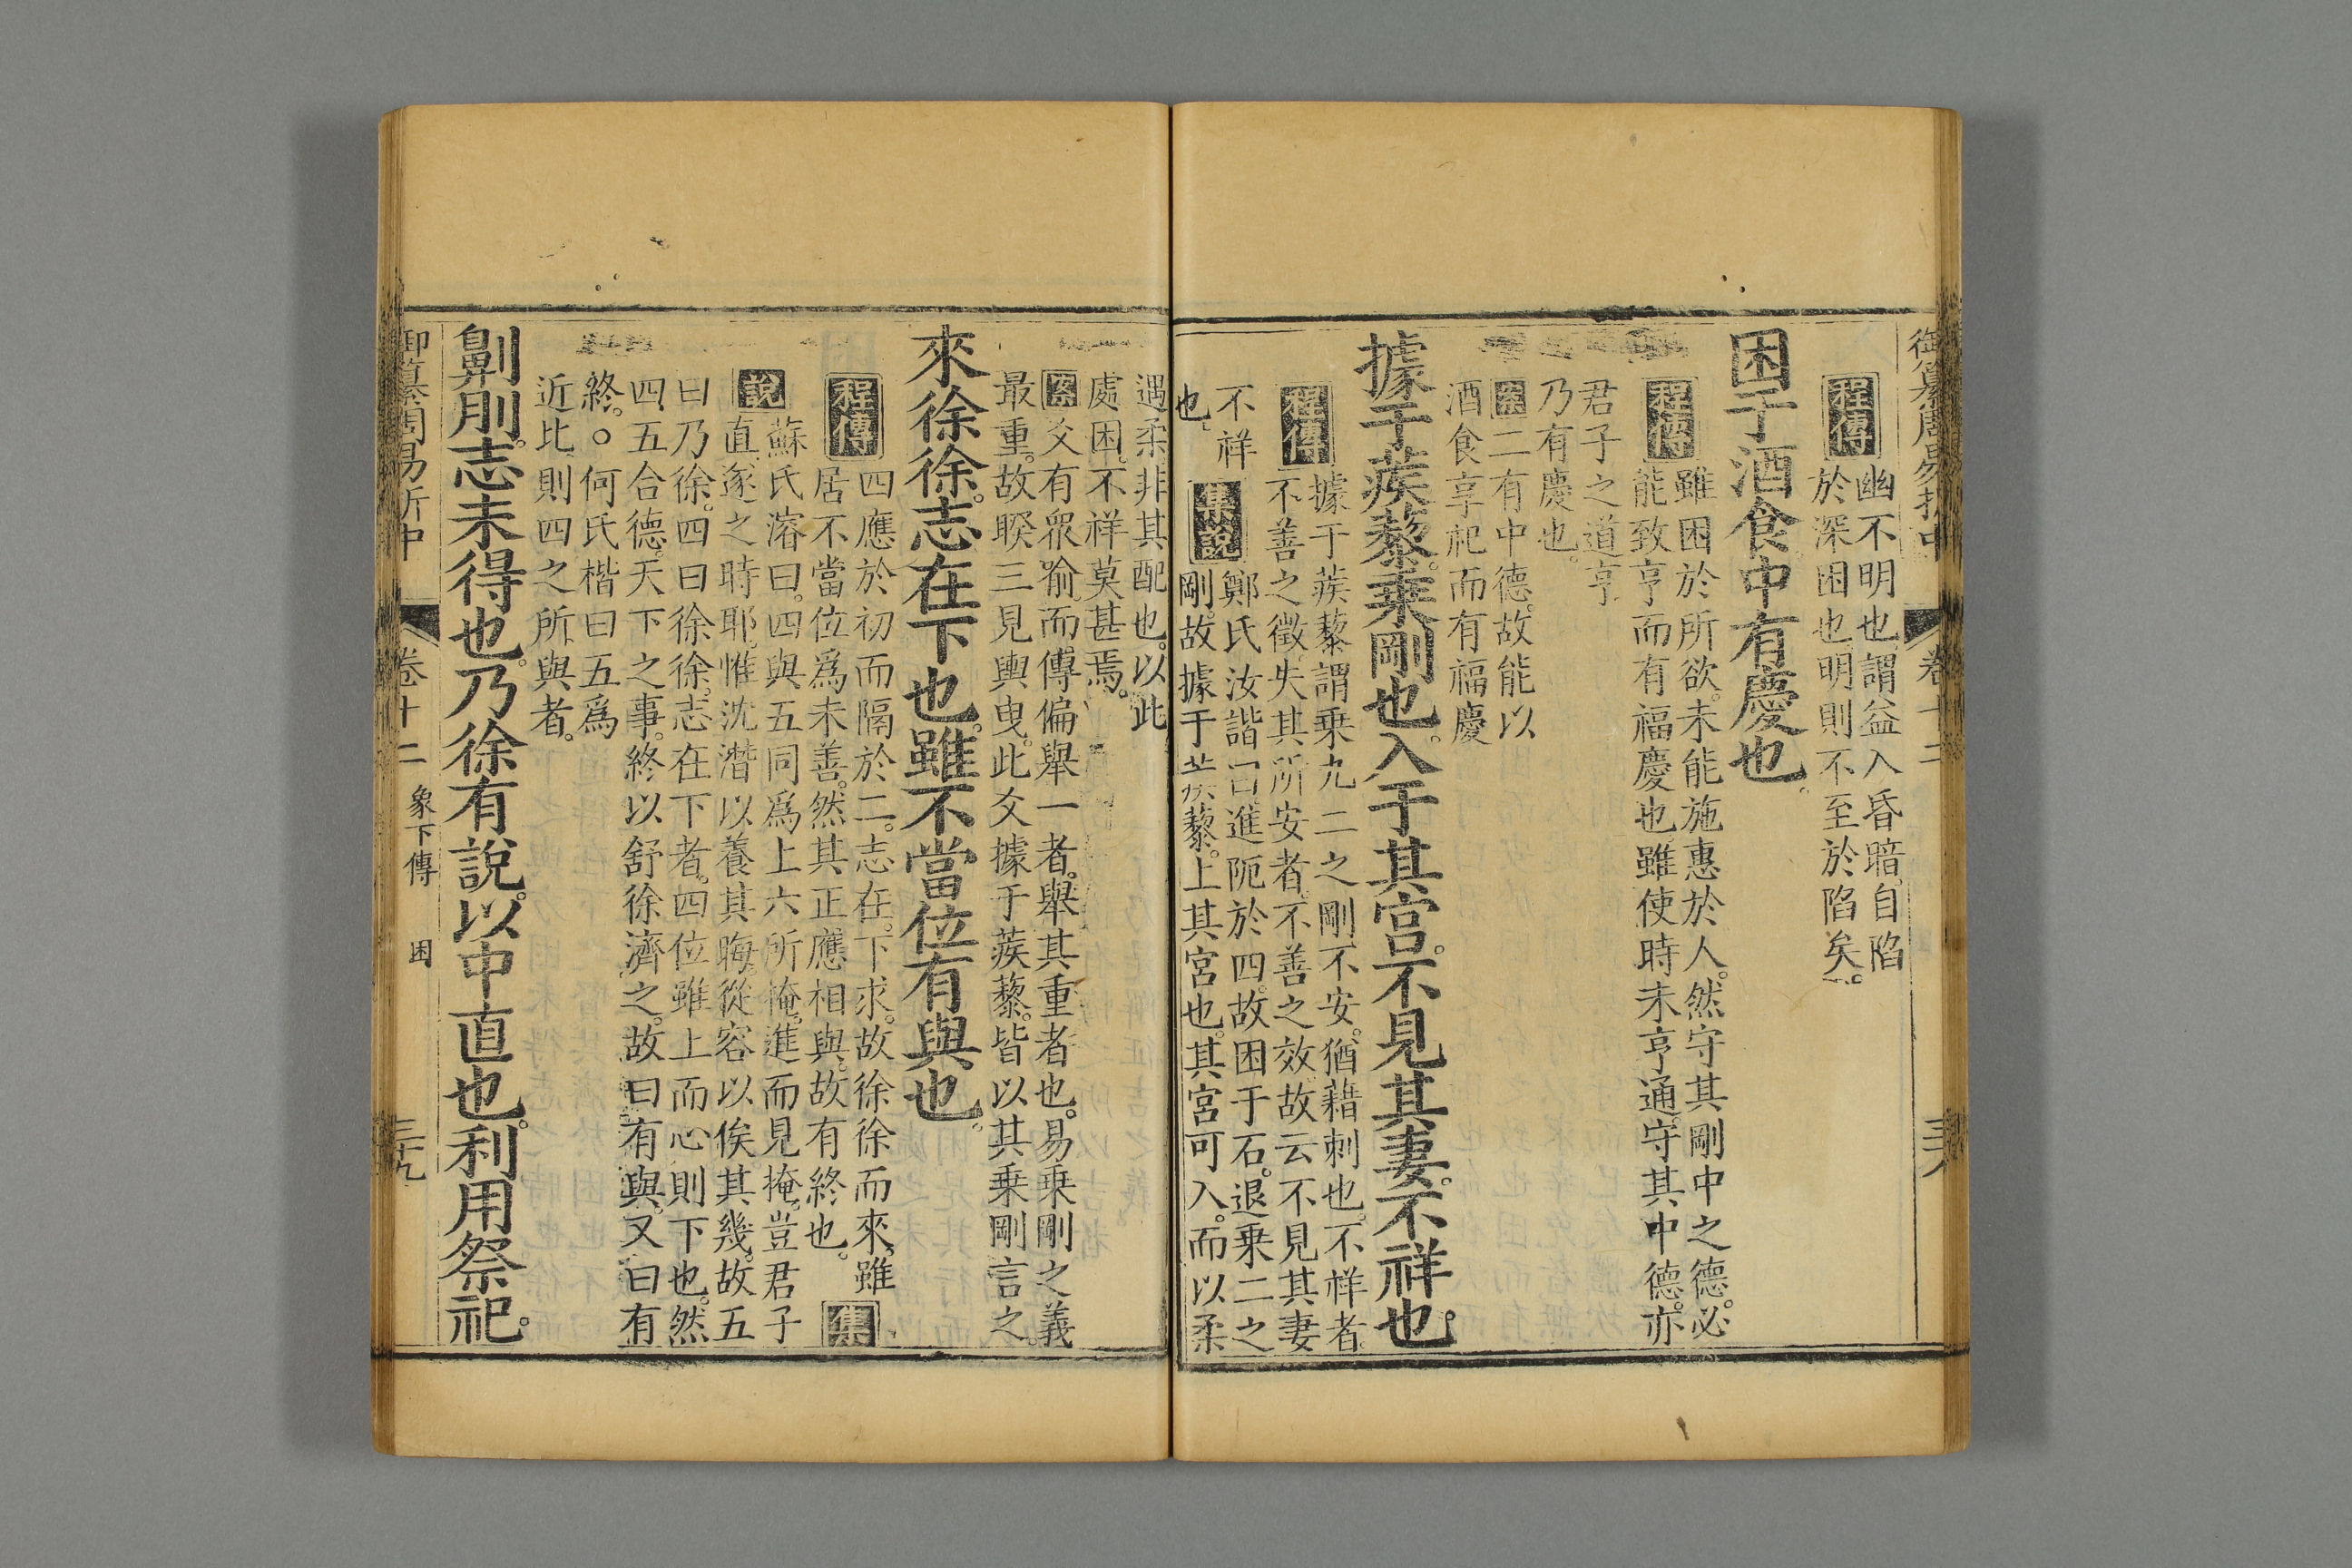 御纂周易折中 卷十二 三十八
程傳 幽不明也謂益入昏暗自陷
於深困也明則不至於陷矣
困于酒食中有慶也
程傳 雖困於所欲未能施惠於人然守其剛中之德必
能致亨而有福慶也雖使時未亨通守其中德亦
君子之道亨
乃有慶也
案 二有中德故能以
酒食享祀而有福慶
據于蒺藜乗剛也入于其宮不見其妻不祥也
程傳 據于蒺藜謂乗九二之剛不安猶藉刺也不祥者
不善之徵失其所安者不善之效故云不見其妻
不祥
也
集說 鄭氏汝諧曰進阨於四故困于石退乗二之
剛故據于蒺藜上其宮也其宮可入而以柔
遇柔非其配也以此
處困不祥莫甚焉
案 爻有衆喻而傳偏舉一者舉其重者也易乗剛之義
最重故睽三見輿曳此爻據于蒺藜皆以其乗剛言之
來徐徐志在下也雖不當位有與也
程傳 四應於初而隔於二志在下求故徐徐而來雖
居不當位爲未善然其正應相與故有終也
集
說 蘇氏濬曰四與五同爲上六所掩進而見掩豈君子
直遂之時耶惟沈潛以養其晦從容以俟其幾故五
曰乃徐四曰徐徐志在下者四位雖上而心則下也然
四五合德天下之事終以舒徐濟之故曰有與又曰有
終○何氏楷曰五爲
近比則四之所與者
劓刖志未得也乃徐有說以中直也利用祭祀
御纂周易折中 卷十二 象下傳 困 三十九